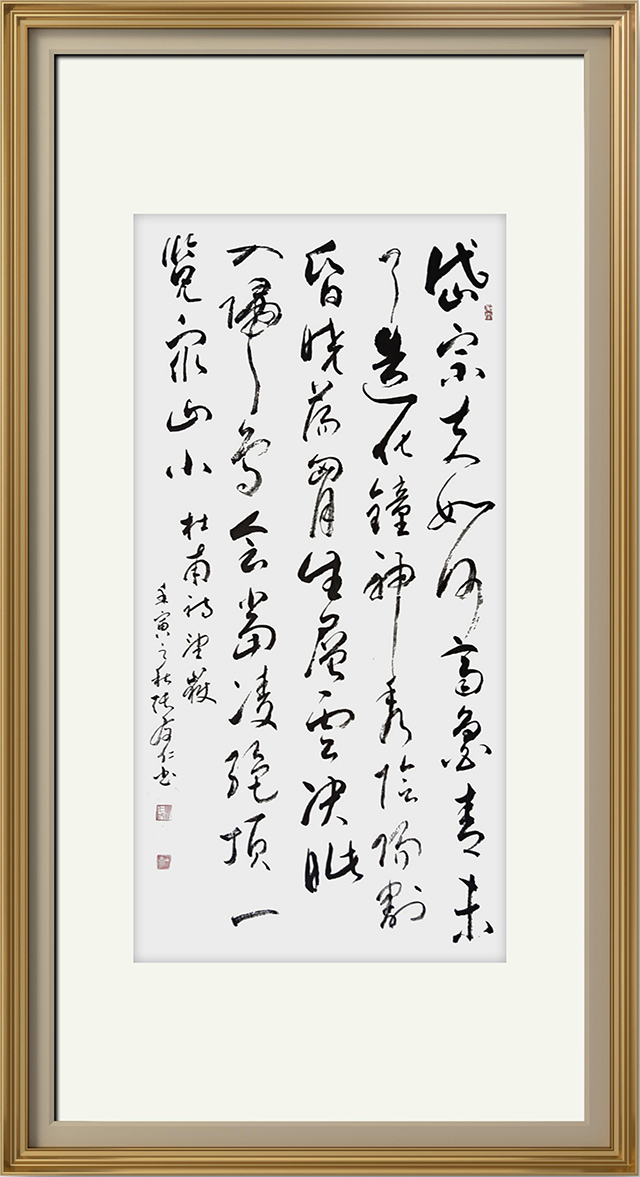 岱宗夫如何齊魯青未
了造化鐘神秀陰陽割
昏曉蕩胷生層雲决眦
入歸鳥會當凌絕頂一
覽眾山小
杜甫詩望嶽
壬寅之秋張仁书